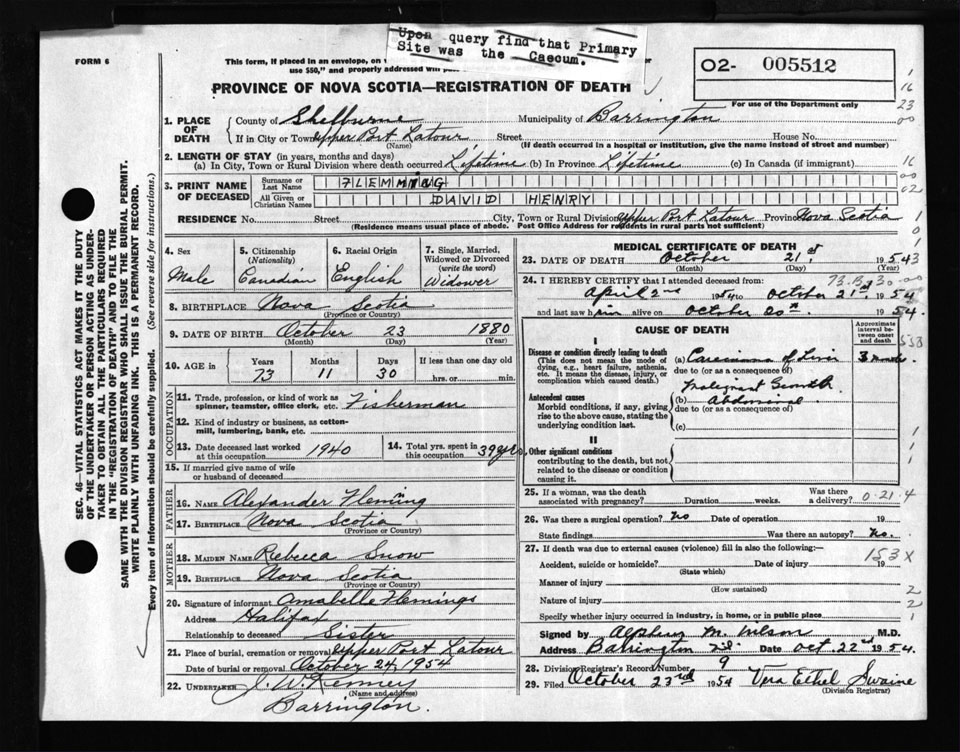 Upon query find that Primary
Site was the Caecum.
FORM 6
This form, if placed in an envelope, on
use $50," and properly addressed will pas
PROVINCE OF NOVA SCOTIA—REGISTRATION OF DEATH
O2- 005512
For use of the Department only
1
16
23
00
16
00
02
1
0
1
SEC. 46—VITAL STATISTICS ACT MAKES IT THE DUTY
OF THE UNDERTAKER OR PERSON ACTING AS UNDER-
TAKER TO OBTAIN ALL THE PARTICULARS REQUIRED
IN THE "REGISTRATION OF DEATH" AND TO FILE THE
SAME WITH THE DIVISION REGISTRAR WHO SHALL ISSUE THE BURIAL PERMIT.
WRITE PLAINLY WITH UNFADING INK. THIS IS A PERMANENT RECORD.
Every item of information should be carefully supplied. (See reverse side for instructions.)
1. PLACE OF DEATH County of Shelburne Municipality of Barrington
If in City or Town Upper Port Latour Street House No.
(Name) (If death occurred in a hospital or institution, give the name instead of street and number)
2. LENGTH OF STAY (in years, months and days)
(a) In City, Town or Rural Division where death occurred Lifetime (b) In Province Lifetime (c) In Canada (if immigrant)
3. PRINT NAME OF DECEASED Surname or Last Name FLEMMING
All Given or Christian Names DAVID HENRY
RESIDENCE No. Street City, Town or Rural Division Upper Port Latour Province Nova Scotia
(Residence means usual place of abode. Post Office Address for residents in rural parts not sufficient)
4. Sex Male
5. Citizenship (Nationality) Canadian
6. Racial Origin English
7. Single, Married, Widowed or Divorced (write the word) Widower
8. BIRTHPLACE Nova Scotia
(Province or Country)
9. DATE OF BIRTH October 23 1880
(Month) (Day) (Year)
10. AGE in Years 73 Months 11 Days 30 If less than one day hrs. or min.
OCCUPATION
11. Trade, profession, or kind of work as spinner, teamster, office clerk, etc. Fisherman
12. Kind of industry or business, as cotton-mill, lumbering, bank, etc.
13. Date deceased last worked at this occupation 1940
14. Total yrs. spent in this occupation 39 yrs.
15. If married give name of wife or husband of deceased
FATHER
16. NAME Alexander Fleming
17. BIRTHPLACE Nova Scotia
(Province or Country)
MOTHER
18. MAIDEN NAME Rebecca Snow
19. BIRTHPLACE Nova Scotia
(Province or Country)
20. Signature of informant Amabelle Flemings
Address Halifax
Relationship to deceased Sister
21. Place of burial, cremation or removal Upper Port Latour
Date of burial or removal October 24 1954
22. UNDERTAKER J. W. Kenney
(Name and address)
Barrington.
MEDICAL CERTIFICATE OF DEATH
23. DATE OF DEATH October 21st 1954
(Month) (Day) (Year)
24. I HEREBY CERTIFY that I attended deceased from:
April 2nd 1954 to October 21st 1954
and last saw him alive on October 20th 1954.
CAUSE OF DEATH
Approximate interval between onset and death
I
Disease or condition directly leading to death (a) Carcinoma of Liver 3 months
(This does not mean the mode of dying, e.g., heart failure, asthenia, etc. It means the disease, injury, or complication which caused death.)
due to (or as a consequence of)
Malignant Growth
Antecedent causes (b) Abdominal
Morbid conditions, if any, giving rise to the above cause, stating the underlying condition last.
due to (or as a consequence of)
(c)
II
Other significant conditions
contributing to the death, but not related to the disease or condition causing it.
25. If a woman, was the death associated with pregnancy? Duration weeks. Was there a delivery? 0-21-4
26. Was there a surgical operation? No Date of operation 19
State findings Was there an autopsy? No.
27. If death was due to external causes (violence) fill in also the following:—
Accident, suicide or homicide? Date of injury 19
(State which)
153X
Manner of injury
(How sustained)
Nature of injury
Specify whether injury occurred in industry, in home, or in public place
Signed by M. Wilson M.D.
Address Barrington Date Oct. 22nd 1954.
28. Division Registrar's Record Number 9
29. Filed October 23rd 1954 Vera Ethel Swaine
(Division Registrar)